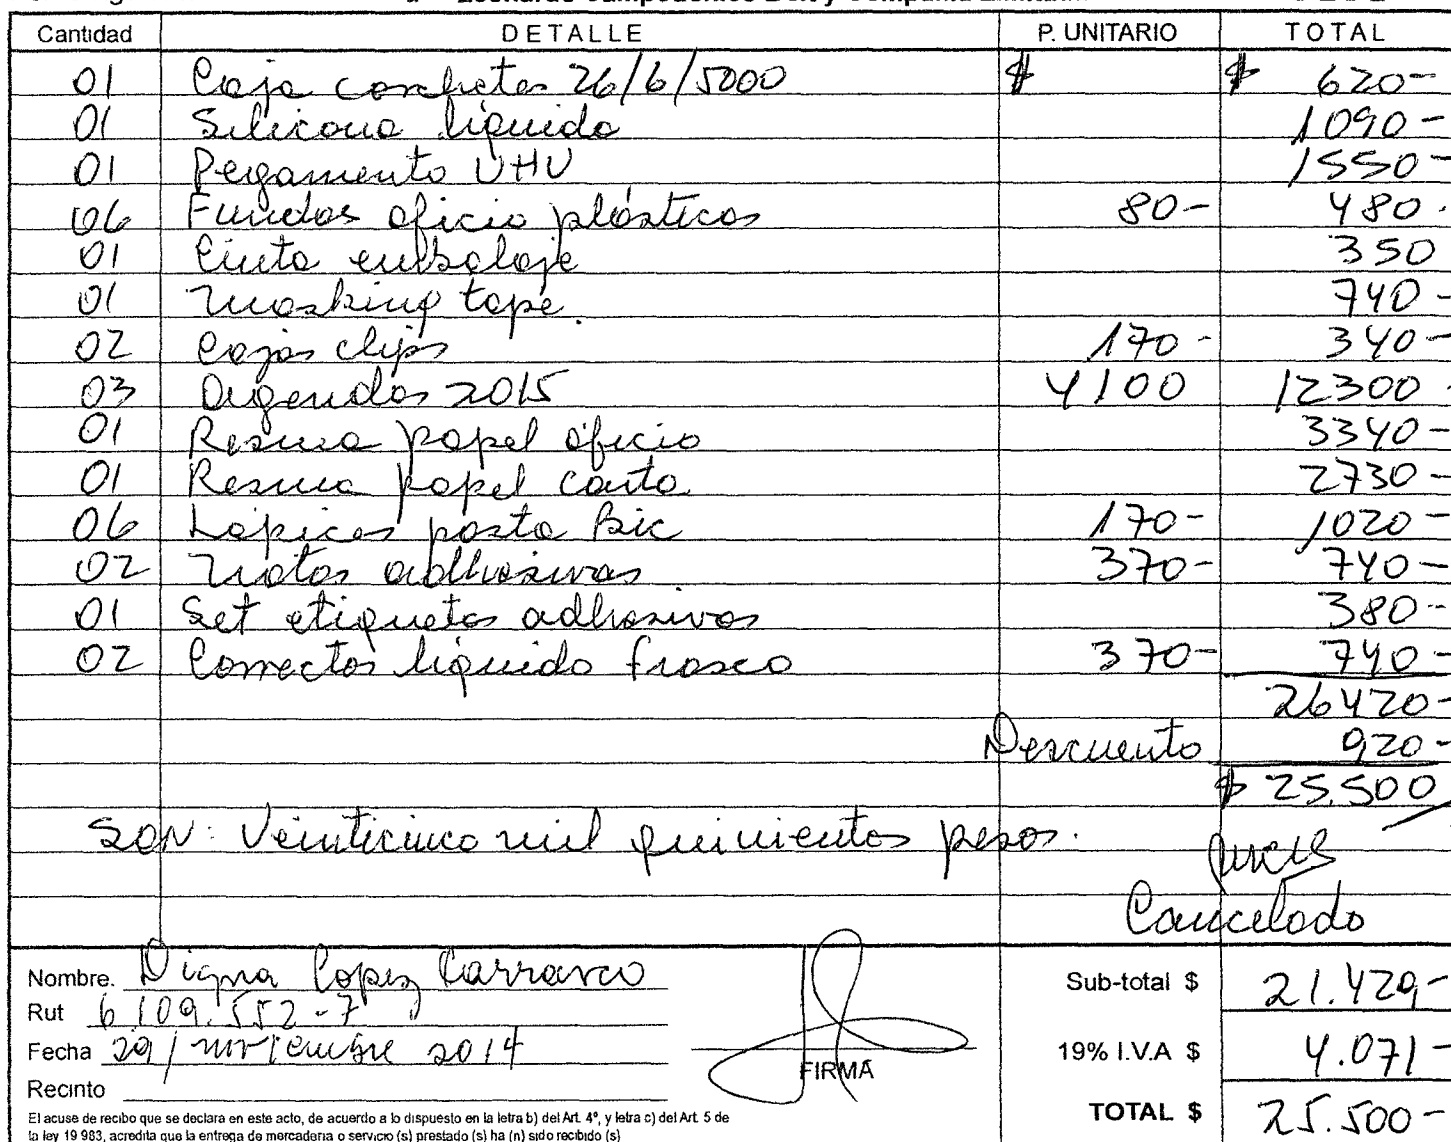 Cantidad DETALLE P. UNITARIO TOTAL
01 Caja corchetes 26/6/5000 $ $ 620-
01 Silicona líquida 1090-
01 Pegamento UHU 1550-
06 Fundas oficio plásticas 80- 480.
01 Cinta embalaje 350
01 Masking tape. 740-
02 Cajas clips 170- 340-
03 Agendas 2015 4100 12300
01 Resma papel oficio 3340-
01 Resma papel carta 2730-
06 Lápices pasta Bic 170- 1020-
02 Notas adhesivas 370- 740-
01 Set etiquetas adhesivas 380-
02 Corrector líquido frasco 370- 740-
26420-
Descuento 920-
$ 25.500
SON: Veinticinco mil quinientos pesos.
Cancelado
Nombre. Digna Lopez Carrasco
Rut 6.109.552-7
Fecha 29/noviembre 2014
Recinto
FIRMA
Sub-total $ 21.429-
19% I.V.A $ 4.071-
TOTAL $ 25.500-
El acuse de recibo que se declara en este acto, de acuerdo a lo dispuesto en la letra b) del Art. 4°, y letra c) del Art. 5 de
la ley 19 983, acredita que la entrega de mercaderia o servicio (s) prestado (s) ha (n) sido recibido (s)